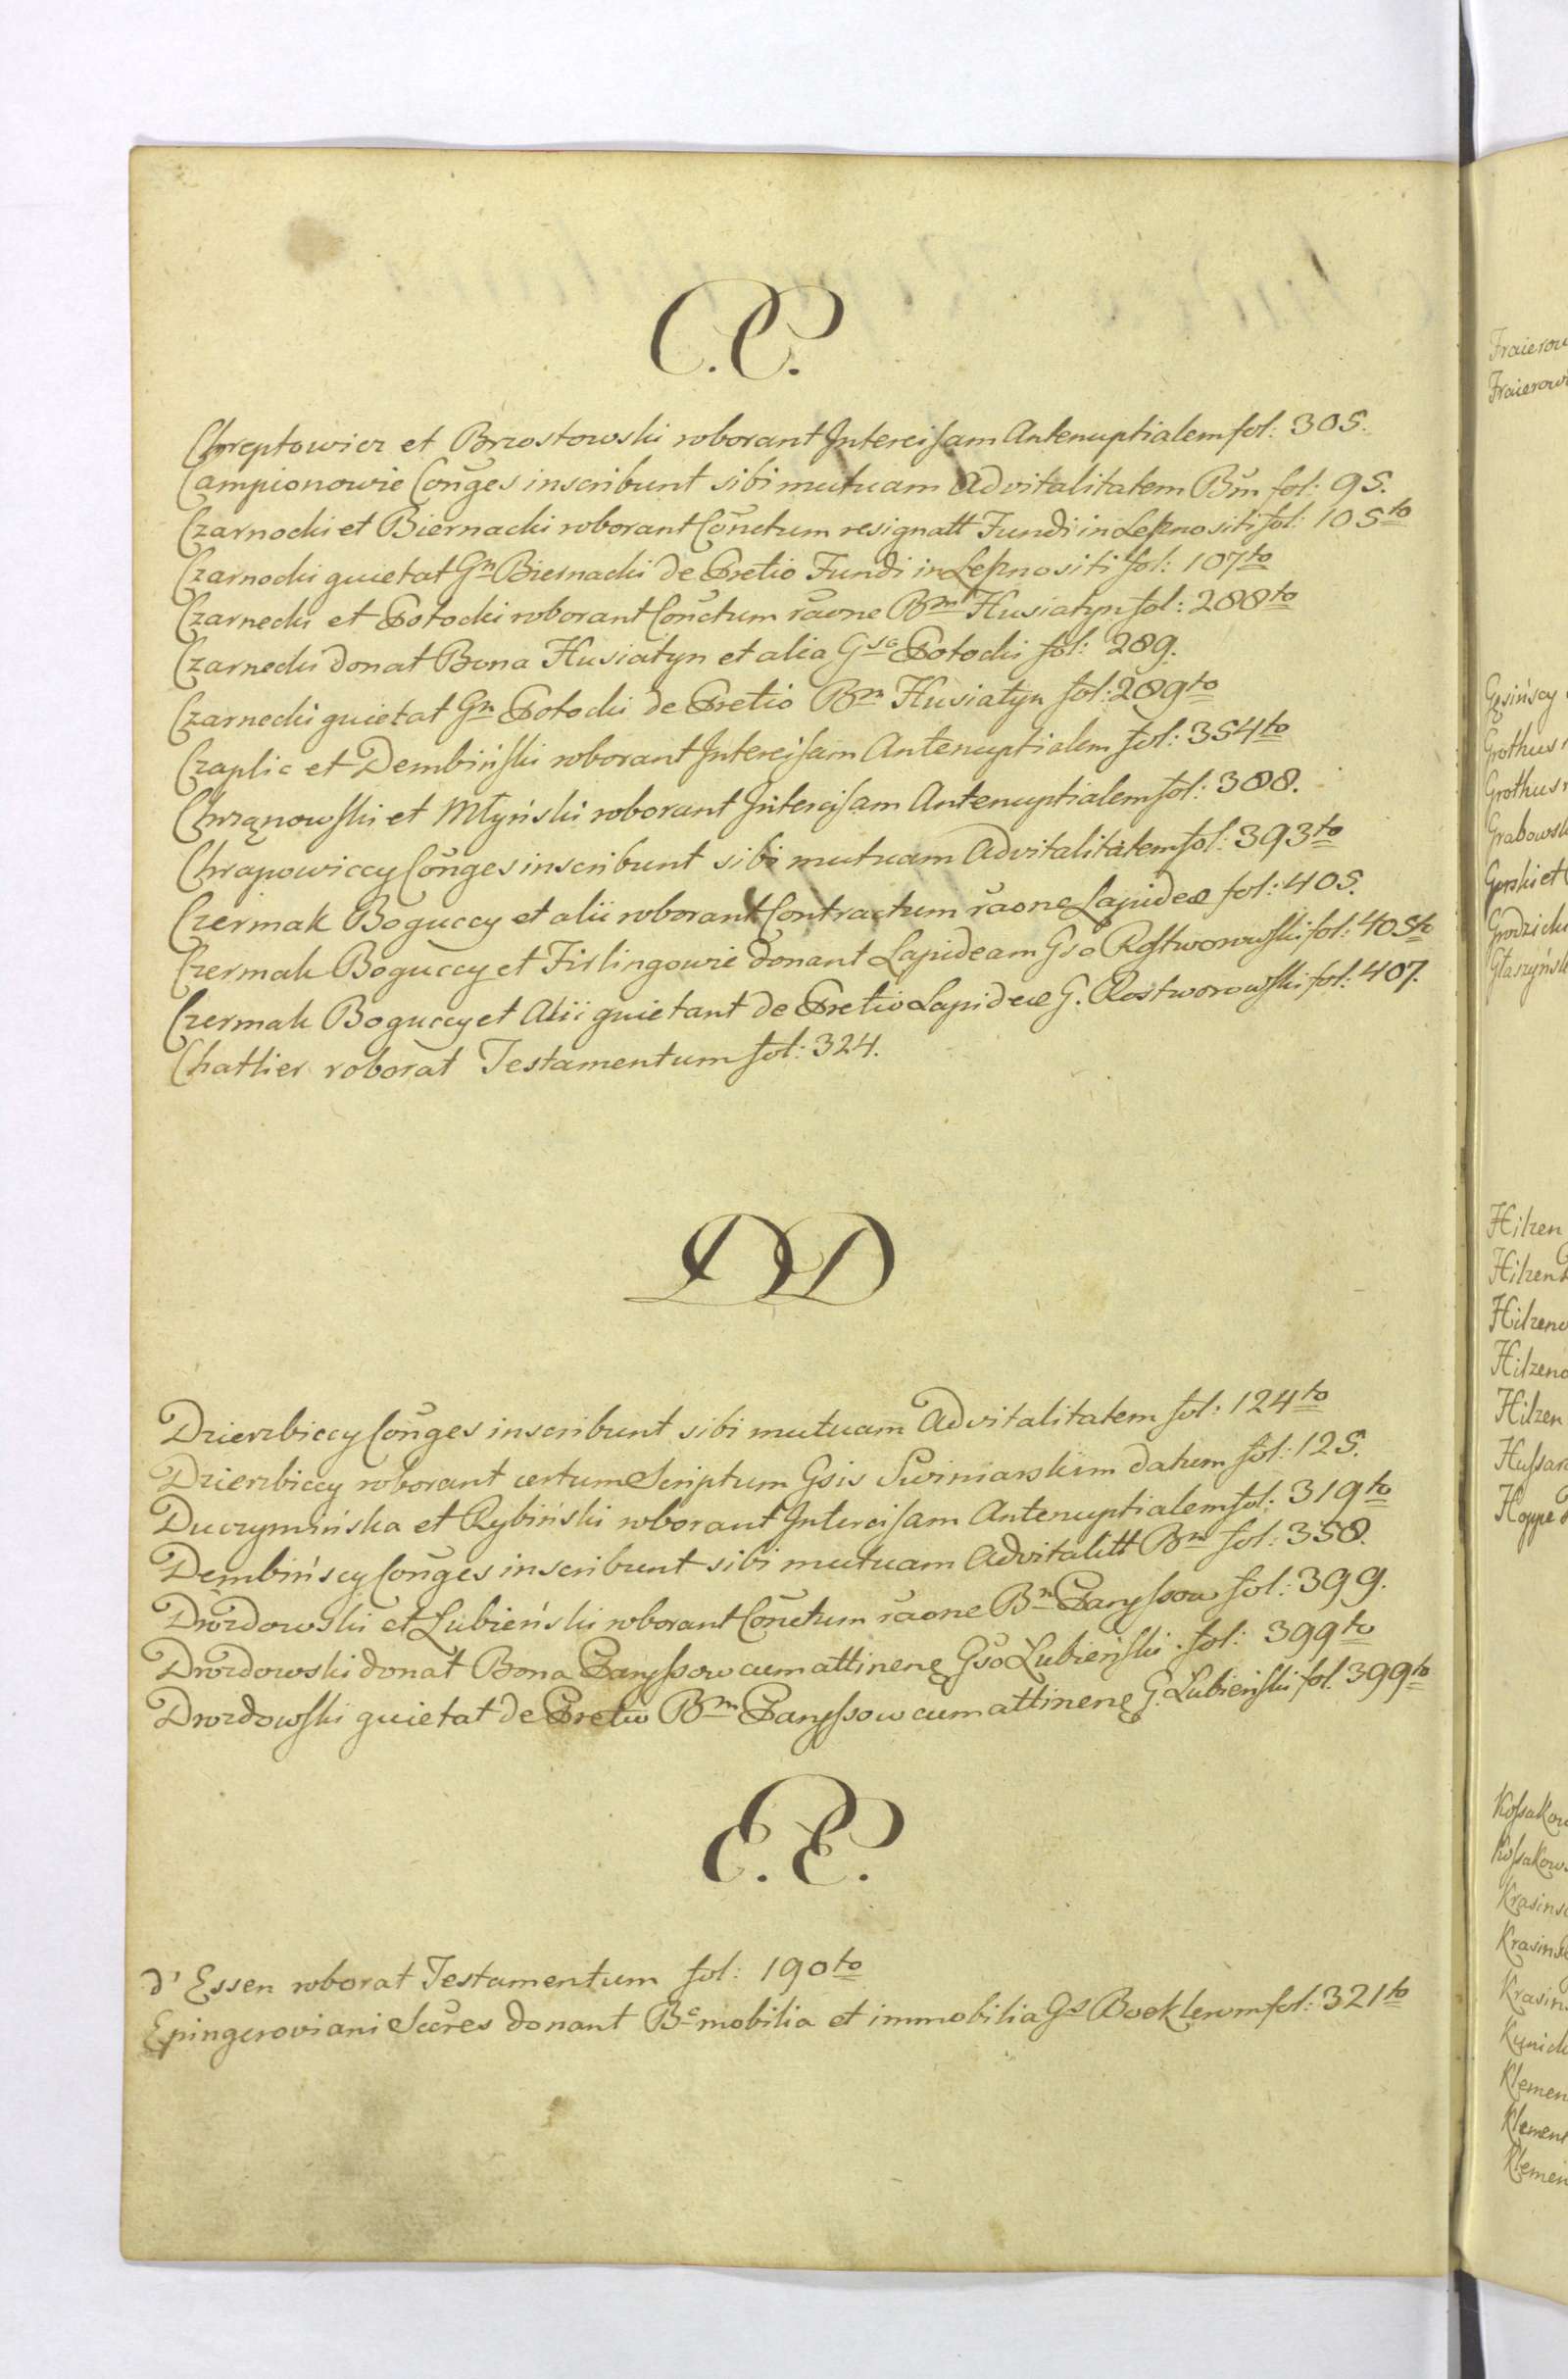 C.C.
Chreptowicz et Brzostowski roborant Intercisam Antenuptialem fol: 305.
Campionowie Conges inscribunt sibi mutuam Advitalitatem Bm fol: 95.
Czarnocki et Biernacki roborant Conctum resignatt Fundi in Leszno siti fol: 105to
Czarnocki quietat Gn Biernacki de Pretio Fundi in Leszno siti fol: 107to
Czarnecki et Potocki roborant Conctum raone Bm Husiatyn fol: 288to
Czarnecki donat Bona Husiatyn et alia Gso Potocki fol: 289.
Czarnecki quietat Gn Potocki de Pretio Bm Husiatyn fol: 289to
Czaplic et Dembiński roborant Intercisam Antenuptialem fol: 354to
Chrząnowski et Młyński roborant Intercisam Antenuptialem fol: 388.
Chrapowiccy Conges inscribunt sibi mutuam Advitalitatem fol: 393to
Czermak Boguccy et alii roborant Contractum raone Lapideæ fol: 405.
Czermak Boguccy et Firlingowie donant Lapideam Gso Rostworowski fol: 405to
Czermak Boguccy et Alii quietant de Pretio Lapideæ G. Rostworowski fol: 407.
Chatlier roborat Testamentum fol: 324.
DD
Dzierzbiccy Conges inscribunt sibi mutuam Advitalitatem fol: 124to
Dzierzbiccy roborant certum Scriptum Gsis Swiniarskim datum fol: 125.
Duczymińska et Rybiński roborant Intercisam Antenuptialem fol: 319to
Dembińscy Conges inscribunt sibi mutuam Advitalitt Bm fol: 358.
Drozdowski et Lubieński roborant Conctum raone Bm Paryssow fol: 399.
Drozdowski donat Bona Paryssow cum attinen Gso Lubieński fol: 399to
Drozdowski quietat de Pretio Bm Paryssow cum attinen G. Lubieński fol. 399to
E.E.
d' Essen roborat Testamentum fol: 190to
Epingeroviani Sccres donant Ba mobilia et immobilia Gs Boeklerom fol: 321to
Fraierow
Fraierow
Gęsińscy
Grothus
Grothus
Grabowsk
Gorski et
Grodzick
Głaszyńsk
Hilzen
Hilzen
Hilzeno
Hilzeno
Hilzen
Hussar
Hoppe
Kossakow
Kossakow
Krasins
Krasins
Krasin
Kunick
Klemen
Klement
Klemen